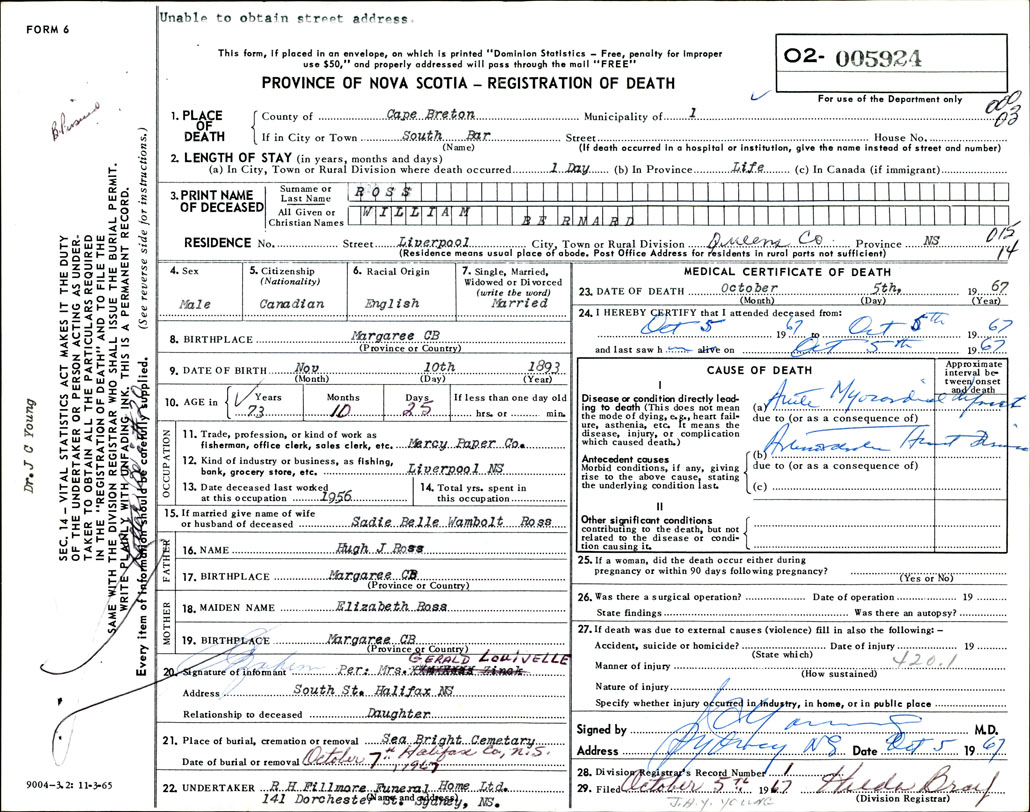 FORM 6
Unable to obtain street address.
This form, if placed in an envelope, on which is printed "Dominion Statistics – Free, penalty for improper
use $50," and properly addressed will pass through the mail "FREE"
PROVINCE OF NOVA SCOTIA – REGISTRATION OF DEATH
02- 005924
For use of the Department only
000
03
1. PLACE OF DEATH
County of Cape Breton Municipality of 1
If in City or Town South Bar Street House No.
(Name) (If death occurred in a hospital or institution, give the name instead of street and number)
2. LENGTH OF STAY (in years, months and days)
(a) In City, Town or Rural Division where death occurred 1 Day (b) In Province Life (c) In Canada (if immigrant)
3. PRINT NAME OF DECEASED
Surname or Last Name ROSS
All Given or Christian Names WILLIAM BERNARD
RESIDENCE No. Street Liverpool City, Town or Rural Division Queens Co. Province NS
015
14
(Residence means usual place of abode. Post Office Address for residents in rural parts not sufficient)
4. Sex
Male
5. Citizenship
(Nationality)
Canadian
6. Racial Origin
English
7. Single, Married,
Widowed or Divorced
(write the word)
Married
8. BIRTHPLACE Margaree CB
(Province or Country)
9. DATE OF BIRTH Nov 10th 1893
(Month) (Day) (Year)
10. AGE in Years Months Days If less than one day old
73 10 25 hrs. or min.
OCCUPATION
11. Trade, profession, or kind of work as
fisherman, office clerk, sales clerk, etc. Mercy Paper Co.
12. Kind of industry or business, as fishing,
bank, grocery store, etc. Liverpool NS
13. Date deceased last worked
at this occupation 1956
14. Total yrs. spent in
this occupation
15. If married give name of wife
or husband of deceased Sadie Belle Wambolt Ross
FATHER
16. NAME Hugh J Ross
17. BIRTHPLACE Margaree CB
(Province or Country)
MOTHER
18. MAIDEN NAME Elizabeth Ross
19. BIRTHPLACE Margaree CB
(Province or Country)
GERALD LOUIVELLE
20. Signature of informant Per: Mrs.
Address South St. Halifax NS
Relationship to deceased Daughter
21. Place of burial, cremation or removal Sea Bright Cemetary
Halifax Co, N.S.
Date of burial or removal October 7th 1967
22. UNDERTAKER R.H Fillmore Funeral Home Ltd.
(Name and address)
141 Dorchester St. Sydney, NS.
MEDICAL CERTIFICATE OF DEATH
23. DATE OF DEATH October 5th, 1967
(Month) (Day) (Year)
24. I HEREBY CERTIFY that I attended deceased from:
Oct 5 1967 to Oct 5th 1967
and last saw h m alive on Oct 5th 1967
CAUSE OF DEATH
Approximate
interval be-
tween onset
and death
I
Disease or condition directly lead-
ing to death (This does not mean
the mode of dying, e.g., heart fail-
ure, asthenia, etc. It means the
disease, injury, or complication
which caused death.)
(a) Acute Myocardial Infarct
due to (or as a consequence of)
Antecedent causes
Morbid conditions, if any, giving
rise to the above cause, stating
the underlying condition last.
(b) Heart Disease
due to (or as a consequence of)
(c)
II
Other significant conditions
contributing to the death, but not
related to the disease or condi-
tion causing it.
25. If a woman, did the death occur either during
pregnancy or within 90 days following pregnancy?
(Yes or No)
26. Was there a surgical operation? Date of operation 19
State findings Was there an autopsy?
27. If death was due to external causes (violence) fill in also the following: –
Accident, suicide or homicide? Date of injury 19
(State which)
420.1
Manner of injury
(How sustained)
Nature of injury
Specify whether injury occurred in industry, in home, or in public place
Signed by M.D.
Address Sydney NS Date Oct 5 1967
28. Division Registrar's Record Number 1
29. Filed October 5th 1967
(Division Registrar)
J.A.Y. YOUNG
Dr. J C Young
SEC. 14 – VITAL STATISTICS ACT MAKES IT THE DUTY
OF THE UNDERTAKER OR PERSON ACTING AS UNDER-
TAKER TO OBTAIN ALL THE PARTICULARS REQUIRED
IN THE "REGISTRATION OF DEATH" AND TO FILE THE
SAME WITH THE DIVISION REGISTRAR WHO SHALL ISSUE THE BURIAL PERMIT.
WRITE PLAINLY WITH UNFADING INK. THIS IS A PERMANENT RECORD.
Every item of information should be carefully supplied. (See reverse side for instructions.)
9004-3.2: 11-3-65